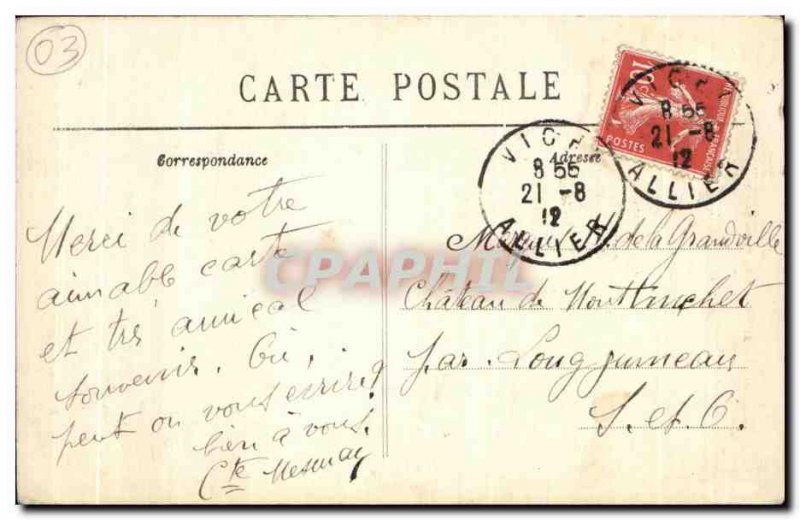 03
CARTE POSTALE
Correspondance
Adresse
10
POSTES
VICHY
8 55
21 -8
12
ALLIER
VICHY
8 55
21 -8
12
ALLIER
Merci de votre
aimable carte
et très amical
souvenir. Où,
peut on vous écrire?
bien à vous.
Cte
de la Grandville
Château de
par Longjumeau
S. et O.
CPAPHIL